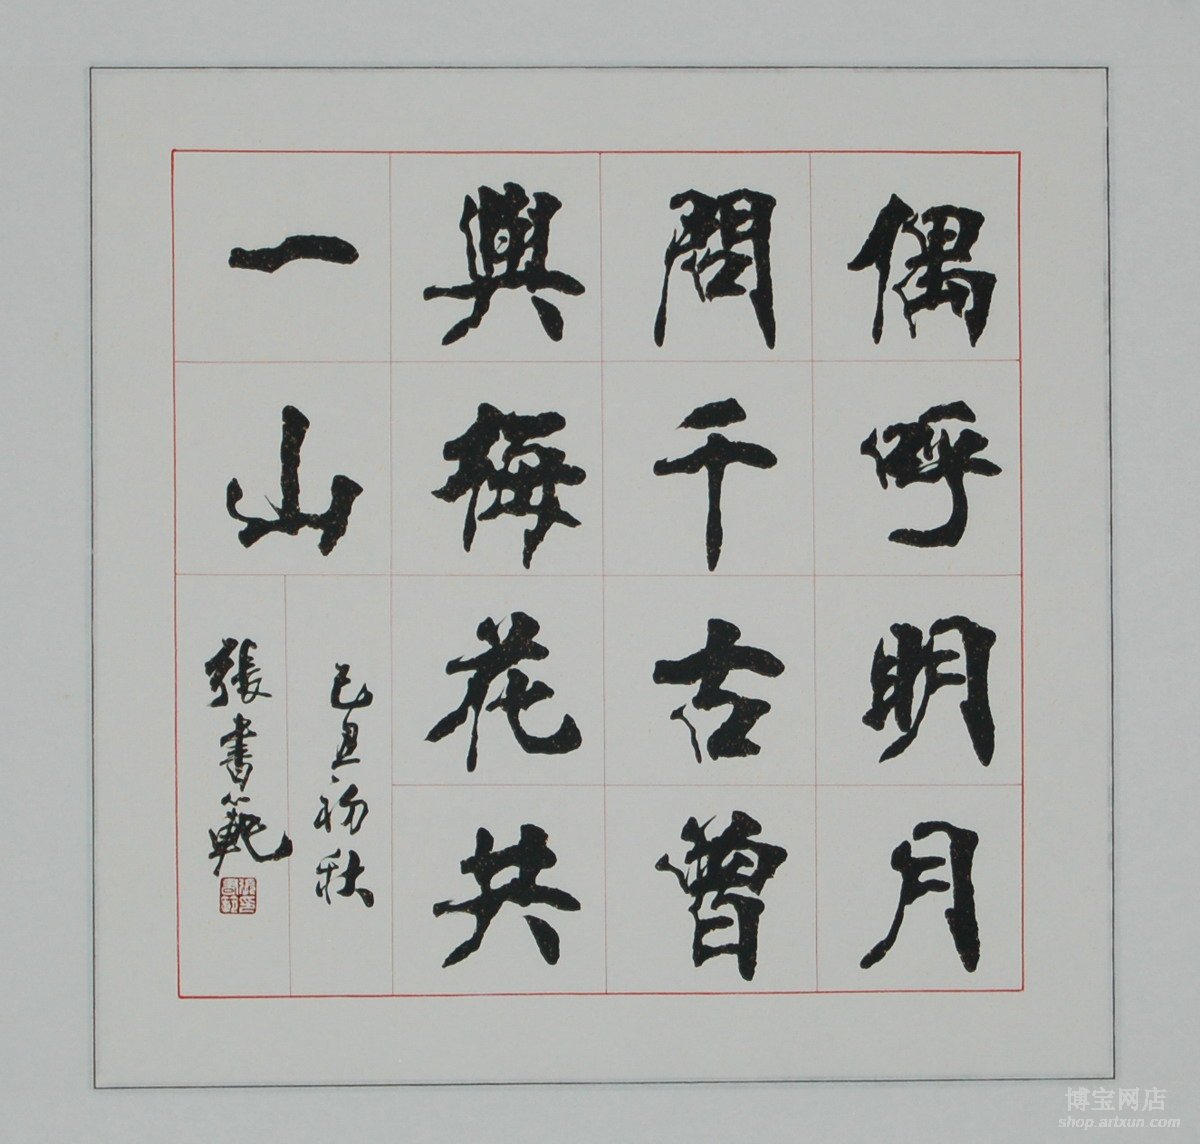 偶呼明月
問千古曾
與梅花共
一山
己丑初秋
張書範
博宝网店
shop.artxun.com